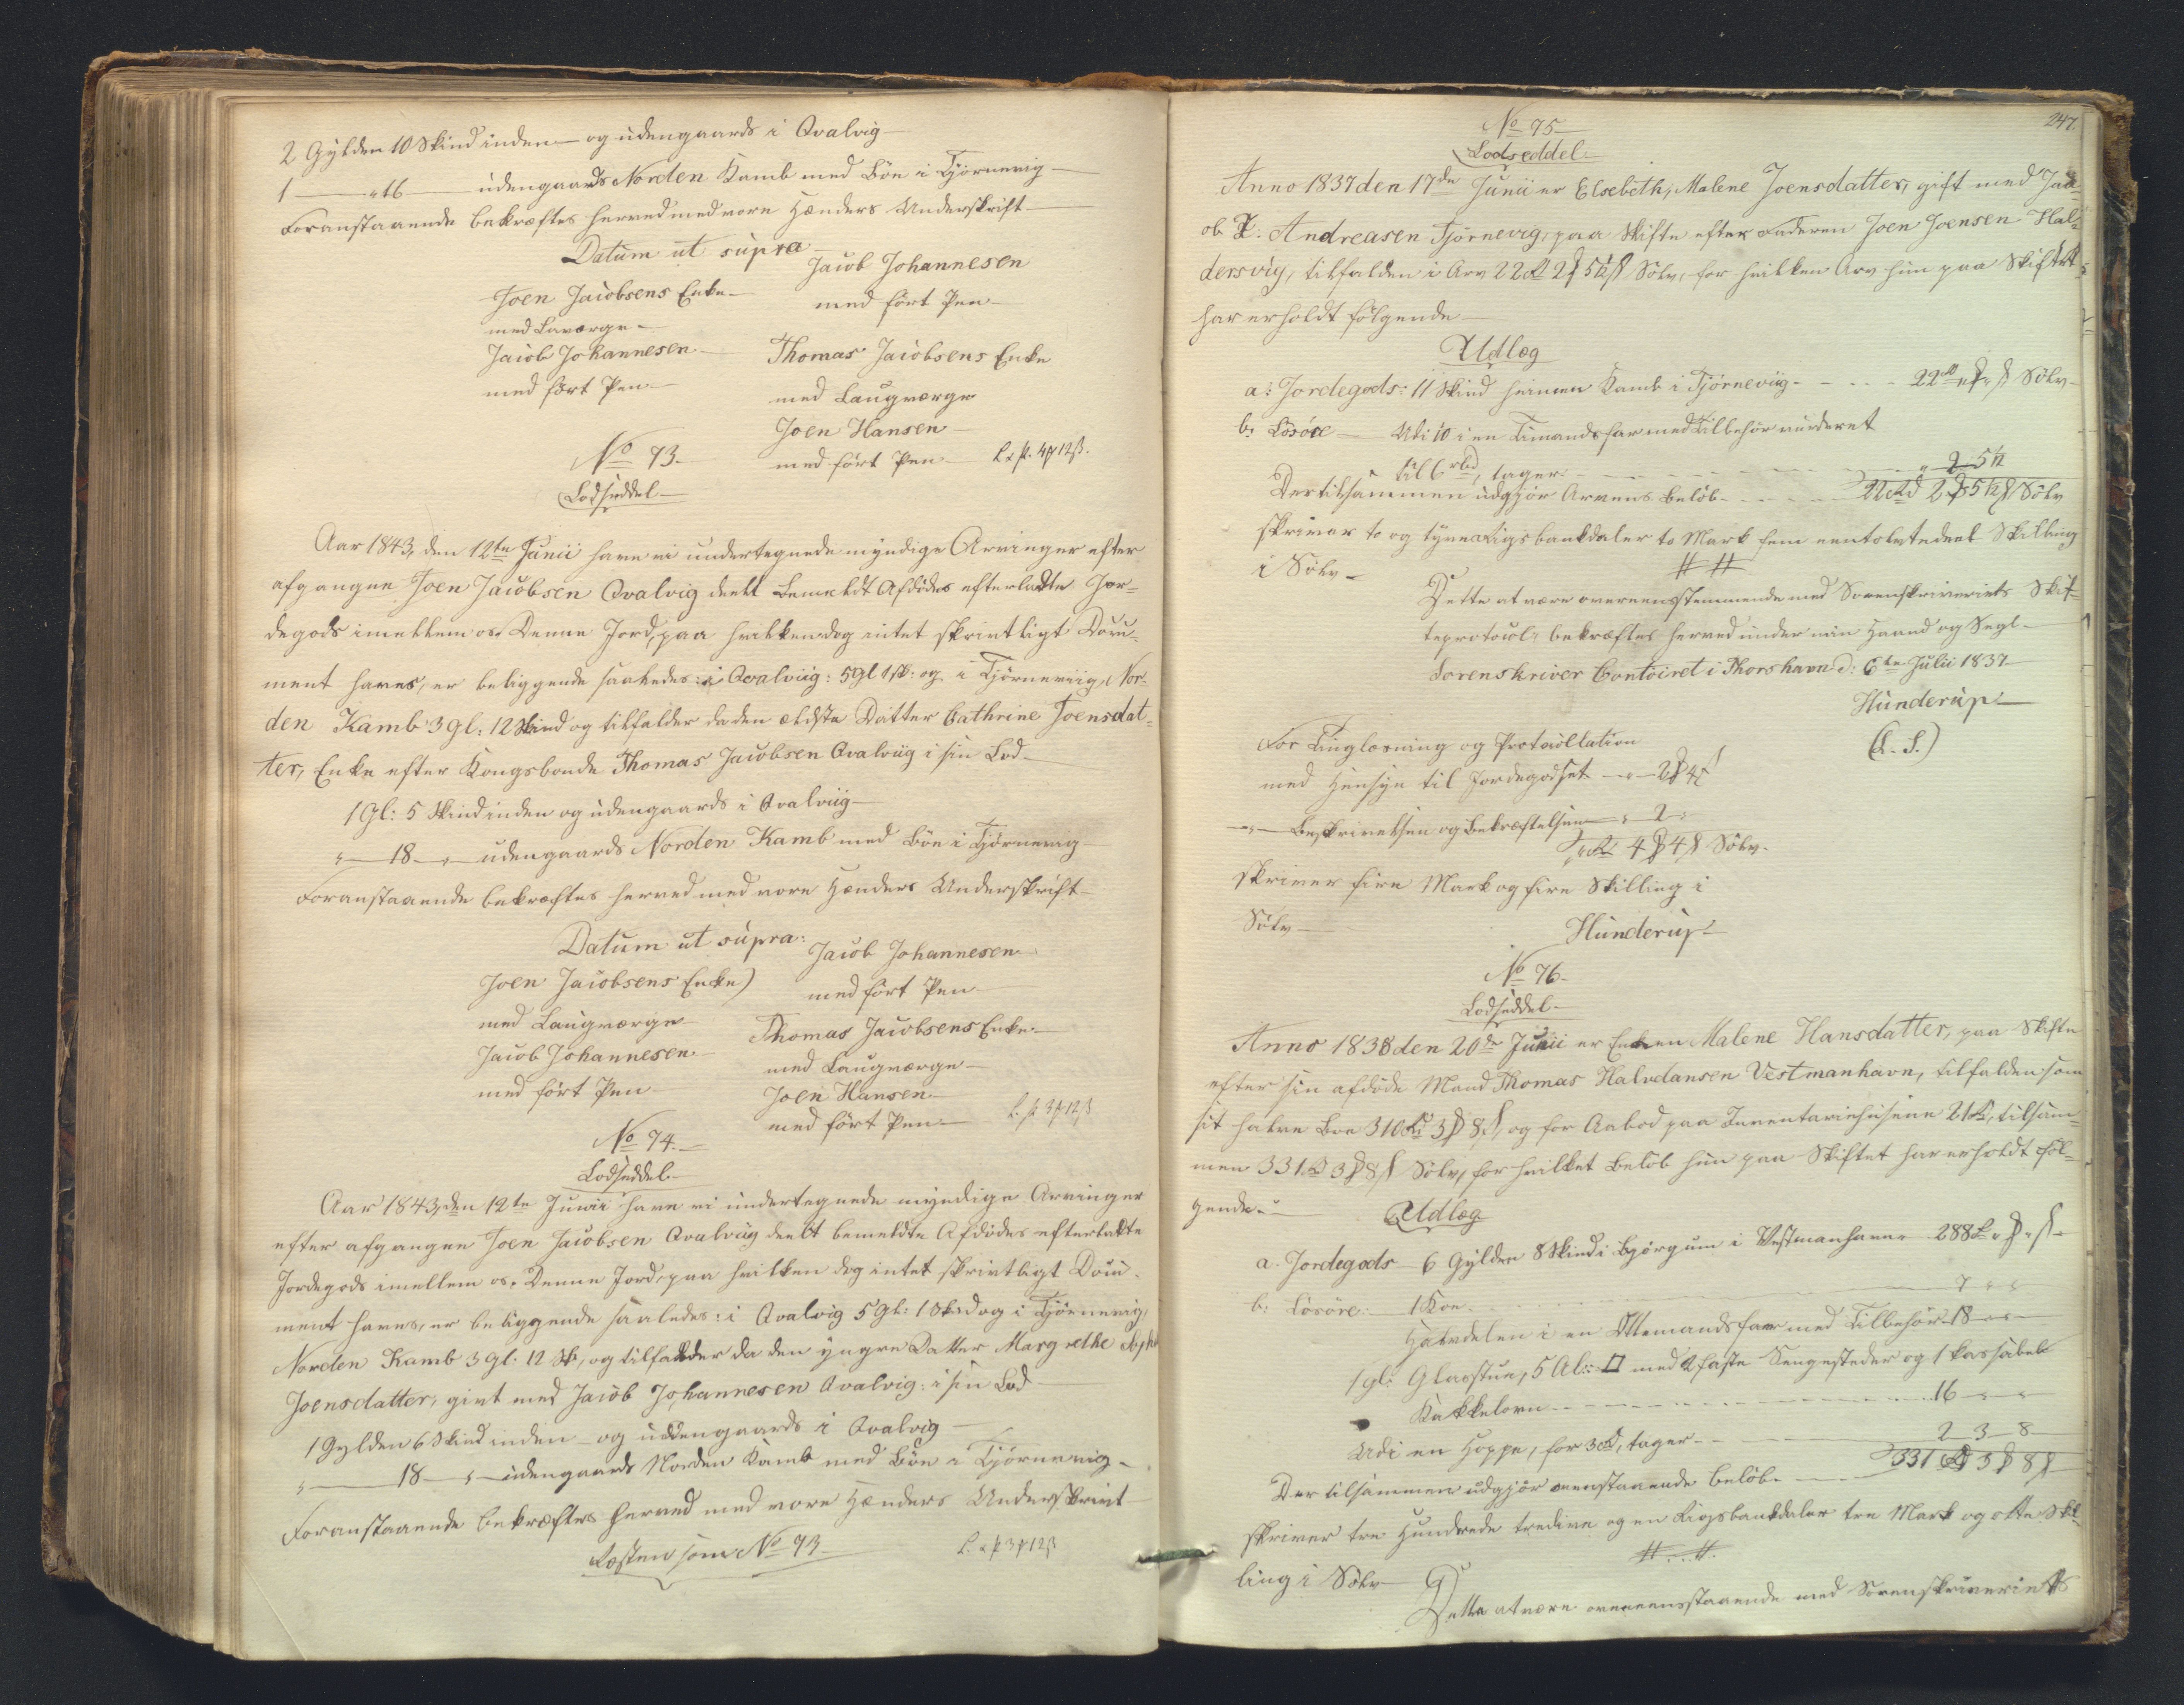 2 Gylden 10 Skind inden- og udengaards i Qvalvig-
1 - " 16 - udengaards Norden Kamb med Bøe i Tjörnevig-
Foranstaaende bekræftes herved med vore Hænders Underskrift-
Datum ut supra-
Jacob Johannesen
Joen Jacobsens Enke-
med ført Pen-
med Lavværge-
Jacob Johannesen-
Thomas Jacobsens Enke
med ført Pen-
med Laugværge
Joen Hansen-
No 73-
med ført Pen- 4 12ß.
Lodseddel-
Aar 1843, den 12te Junii have vi undertegnede myndige Arvinger efter
afgangne Joen Jacobsen Qvalvig deelt bemeldt Afdödes efterladte Jor-
degods imellem os. Denne Jord, paa hvilken dog intet skrivtligt Docu-
ment haves, er beliggende saaledes: i Qvalviig: 5 Gl 1 sk: og i Tjörneviig, Nor-
den Kamb 3 gl: 12 Skind og tilfalder da den ældste Datter Cathrine Joensdat-
ter, Enke efter Kongsbonde Thomas Jacobsen Qvalviig i sin Lod-
1 Gl: 5 Skind inden og udengaards i Qvalviig-
" - 18 - " - udengaards Norden Kamb med Böe i Tjörnevig-
Foranstaaende bekræftes herved med vore Hænders Underskrift-
Datum ut supra:
Jacob Johannesen-
Joen Jacobsens Enke)
med ført Pen-
med Laugværge
Thomas Jacobsens Enke-
Jacob Johannesen-
med Laugværge-
med ført Pen-
Joen Hansen-
med ført Pen- 3 12ß
No 74.-
Lodseddel-
Aar 1843, den 12te Junii have vi undertegnede myndige Arvinger
efter afgangne Joen Jacobsen Qvalviig deelt bemeldte Afdödes efterladte
Jordegods imellem os. Denne Jord, paa hvilken dog intet skrivtligt Docu-
ment haves, er beliggende saaledes: i Qvalvig 5 Gl: 1 Sk og i Tjörnevig,
Norden Kamb 3 Gl: 12 Sk, og tilfalder da den yngre Datter Margrethe
Joensdatter, givt med Jacob Johannesen Qvalvig: i sin Lod-
1 Gylden 6 Skind inden- og udengaards i Qvalvig-
" - 18 - " - udengaards Norden Kamb med Böe i Tjörnevig-
Foranstaaende bekræftes herved med vore Hænders Underskrivt
Resten som No 73- 3 12ß
247.
No 75-
Lodseddel-
Anno 1837 den 17de Junii er Elsebeth Malene Joensdatter, gift med Jac-
ob Andreasen Tjørnevig, paa Skifte efter Faderen Joen Joensen Hal-
dersvig, tilfalden i Arv 22 Rd 2 5 1/12 ß Sölv, for hvilken Arv hun paa Skiftet
har erholdt følgende-
Udlæg
a: Jordegods: 11 Skind heimen Kamb i Tjörneviig- - - 22 Sölv-
b: Lösöre - Udi 10 i en Timandsfar med Tilbehör vurderet
til 6 rbd, tager - - - " 2 5 1/12
Der tilsammen udgjör Arvens Belöb - - - 22 Rd 2 5 1/12 ß Sölv
skriver to og tyve Rigsbankdaler to Mark fem eentolvtedeel Skilling
i Sölv-
Dette at være overeensstemmende med Sorenskriveriets Skif-
teprotocol, bekræftes herved under min Haand og Segl-
Sorenskriver Contoiret i Thorshavn d: 6te Julii 1837
Hunderup-
(L. S.)
For Tinglæsning og Protocollation
med Hensyn til Jordegodset - " - 2 4ß
- " - Beskrivelsen og Bekræftelsen - " 2 "
" Rd 4 4ß Sölv-
skriver fire Mark og fire Skilling i
Sölv-
Hunderup-
No 76-
Lodseddel-
Anno 1838 den 20de Junii er Enken Malene Hansdatter, paa Skifte
efter sin afdöde Mand Thomas Halvdansen Vestmanhavn, tilfalden som
sit halve Boe 310 Rd 3 8ß, og for Aabod paa Inventariehusene 21 Rd, tilsam-
men 331 Rd 3 8ß Sölv, for hvilket Belöb hun paa Skiftet har erholdt föl-
gende-
Udlæg
a. Jordegods - 6 Gylden 8 Skind i Bjørgum i Vestmanhavn 288
b: Lösöre. 1 Koe - - - 7 " "
Halvdelen i en Ottemandsfar med Tilbehör - 18 - " -
1 gl: Glasstue, 5 Al: □ med 2 faste Sengesteder og 1 kassabel
Kakkelovn - - - 16 - " - "
Udi en Hoppe, for 3 Rd, tager - - - 2 - 3 - 8
Der tilsammen udgjör ovenstaaende Belöb - - - 331 Rd 3 8ß
skriver tre Hundrede tredive og en Rigsbankdaler tre Mark og otte Skil-
ling i Sölv
Dette at være overeensstaaende med Sorenskriveriets